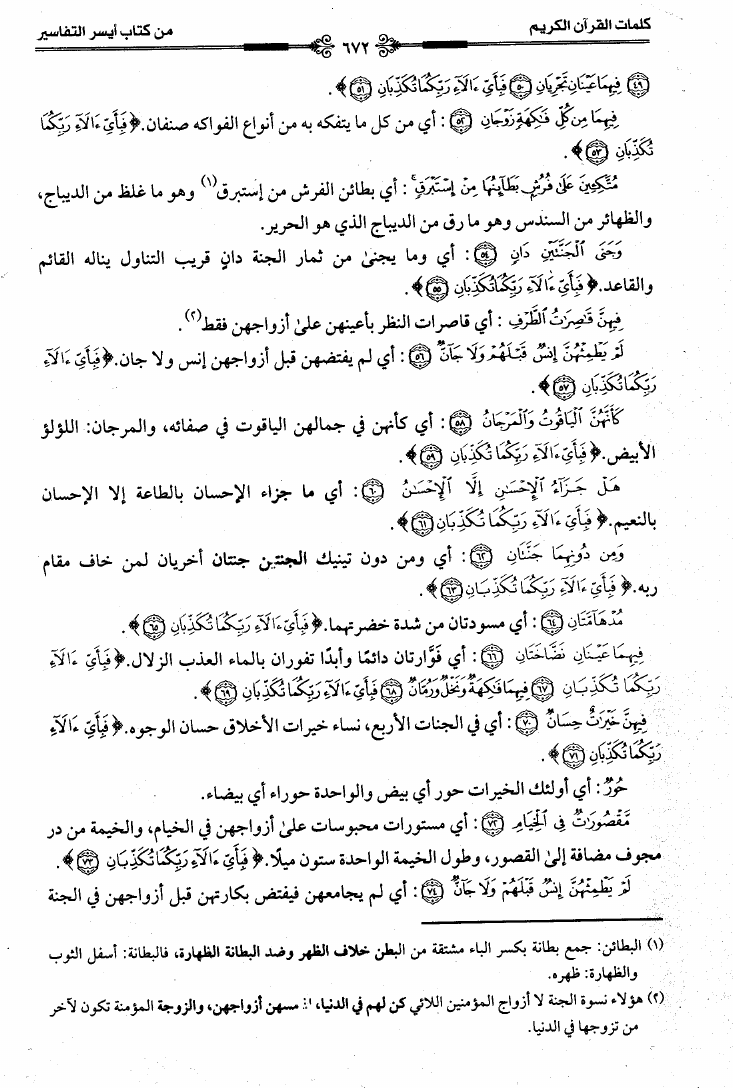 كلمات القرآن الكريم ٦٧٢ من كتاب أيسر التفاسير
﴿٤٩﴾ فِيهِمَا عَيْنَانِ تَجْرِيَانِ ﴿٥٠﴾ فَبِأَيِّ ءَالَآءِ رَبِّكُمَا تُكَذِّبَانِ ﴿٥١﴾ ﴾.
فِيهِمَا مِن كُلِّ فَٰكِهَةٍ زَوْجَانِ ﴿٥٢﴾ : أي من كل ما يتفكه به من أنواع الفواكه صنفان. ﴿ فَبِأَيِّ ءَالَآءِ رَبِّكُمَا
تُكَذِّبَانِ ﴿٥٣﴾ ﴾.
مُتَّكِـِٔينَ عَلَىٰ فُرُشٍۭ بَطَآئِنُهَا مِنْ إِسْتَبْرَقٍ ۚ : أي بطائن الفرش من إستبرق(١) وهو ما غلظ من الديباج،
والظهائر من السندس وهو ما رق من الديباج الذي هو الحرير.
وَجَنَى ٱلْجَنَّتَيْنِ دَانٍ ﴿٥٤﴾ : أي وما يجنىٰ من ثمار الجنة دانٍ قريب التناول يناله القائم
والقاعد. ﴿ فَبِأَيِّ ءَالَآءِ رَبِّكُمَا تُكَذِّبَانِ ﴿٥٥﴾ ﴾.
فِيهِنَّ قَٰصِرَٰتُ ٱلطَّرْفِ : أي قاصرات النظر بأعينهن علىٰ أزواجهن فقط(٢).
لَمْ يَطْمِثْهُنَّ إِنسٌ قَبْلَهُمْ وَلَا جَآنٌّ ﴿٥٦﴾ : أي لم يفتضهن قبل أزواجهن إنس ولا جان. ﴿ فَبِأَيِّ ءَالَآءِ
رَبِّكُمَا تُكَذِّبَانِ ﴿٥٧﴾ ﴾.
كَأَنَّهُنَّ ٱلْيَاقُوتُ وَٱلْمَرْجَانُ ﴿٥٨﴾ : أي كأنهن في جمالهن الياقوت في صفائه، والمرجان: اللؤلؤ
الأبيض. ﴿ فَبِأَيِّ ءَالَآءِ رَبِّكُمَا تُكَذِّبَانِ ﴿٥٩﴾ ﴾.
هَلْ جَزَآءُ ٱلْإِحْسَٰنِ إِلَّا ٱلْإِحْسَٰنُ ﴿٦٠﴾ : أي ما جزاء الإحسان بالطاعة إلا الإحسان
بالنعيم. ﴿ فَبِأَيِّ ءَالَآءِ رَبِّكُمَا تُكَذِّبَانِ ﴿٦١﴾ ﴾.
وَمِن دُونِهِمَا جَنَّتَانِ ﴿٦٢﴾ : أي ومن دون تينيك الجنتين جنتان أخريان لمن خاف مقام
ربه. ﴿ فَبِأَيِّ ءَالَآءِ رَبِّكُمَا تُكَذِّبَانِ ﴿٦٣﴾ ﴾.
مُدْهَآمَّتَانِ ﴿٦٤﴾ : أي مسودتان من شدة خضرتهما. ﴿ فَبِأَيِّ ءَالَآءِ رَبِّكُمَا تُكَذِّبَانِ ﴿٦٥﴾ ﴾.
فِيهِمَا عَيْنَانِ نَضَّاخَتَانِ ﴿٦٦﴾ : أي فوَّارتان دائمًا وأبدًا تفوران بالماء العذب الزلال. ﴿ فَبِأَيِّ ءَالَآءِ
رَبِّكُمَا تُكَذِّبَانِ ﴿٦٧﴾ فِيهِمَا فَٰكِهَةٌ وَنَخْلٌ وَرُمَّانٌ ﴿٦٨﴾ فَبِأَيِّ ءَالَآءِ رَبِّكُمَا تُكَذِّبَانِ ﴿٦٩﴾ ﴾.
فِيهِنَّ خَيْرَٰتٌ حِسَانٌ ﴿٧٠﴾ : أي في الجنات الأربع، نساء خيرات الأخلاق حسان الوجوه. ﴿ فَبِأَيِّ ءَالَآءِ
رَبِّكُمَا تُكَذِّبَانِ ﴿٧١﴾ ﴾.
حُورٌ : أي أولئك الخيرات حور أي بيض والواحدة حوراء أي بيضاء.
مَّقْصُورَٰتٌ فِى ٱلْخِيَامِ ﴿٧٢﴾ : أي مستورات محبوسات علىٰ أزواجهن في الخيام، والخيمة من در
مجوف مضافة إلىٰ القصور، وطول الخيمة الواحدة ستون ميلًا. ﴿ فَبِأَيِّ ءَالَآءِ رَبِّكُمَا تُكَذِّبَانِ ﴿٧٣﴾ ﴾.
لَمْ يَطْمِثْهُنَّ إِنسٌ قَبْلَهُمْ وَلَا جَآنٌّ ﴿٧٤﴾ : أي لم يجامعهن فيفتض بكارتهن قبل أزواجهن في الجنة
(١) البطائن: جمع بطانة بكسر الباء مشتقة من البطن خلاف الظهر وضد البطانة الظهارة، فالبطانة: أسفل الثوب
والظهارة: ظهره.
(٢) هؤلاء نسوة الجنة لا أزواج المؤمنين اللائي كن لهم في الدنيا، مسهن أزواجهن، والزوجة المؤمنة تكون لآخر
من تزوجها في الدنيا.